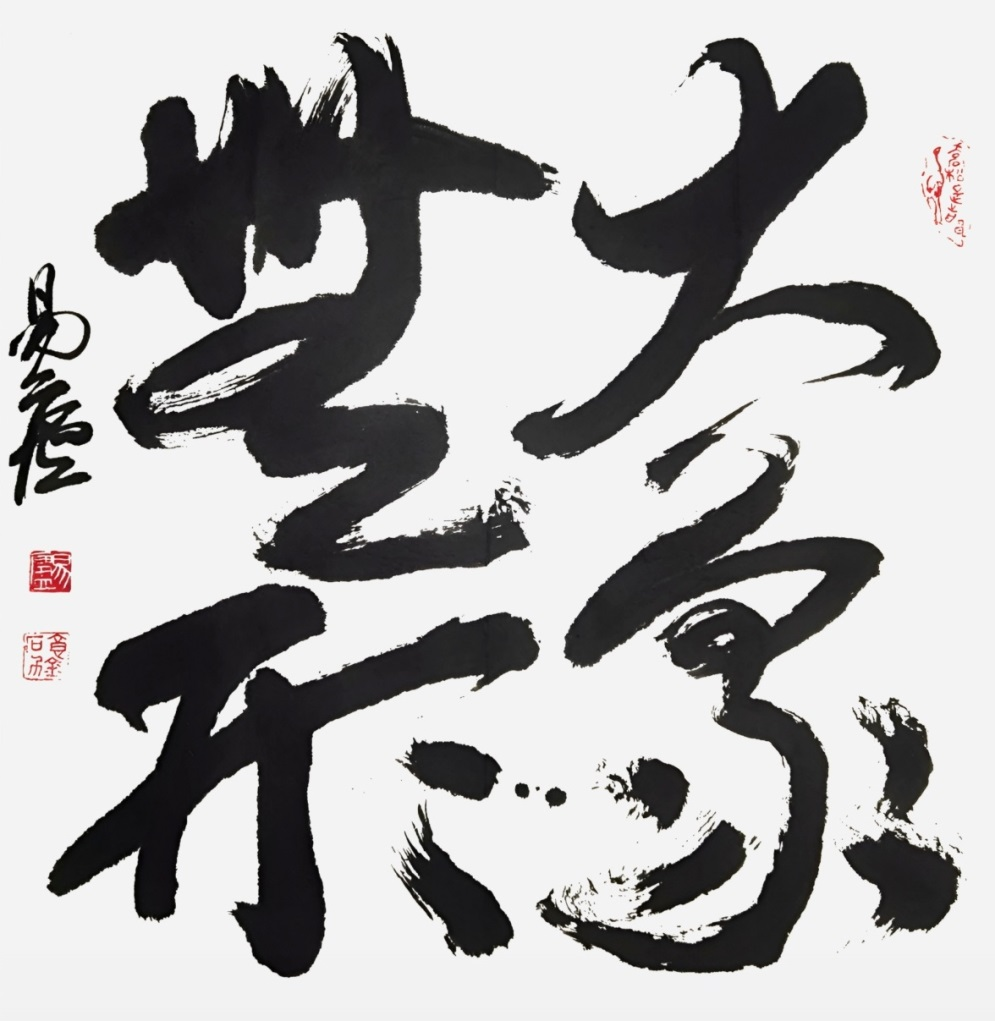 大象
無形
易